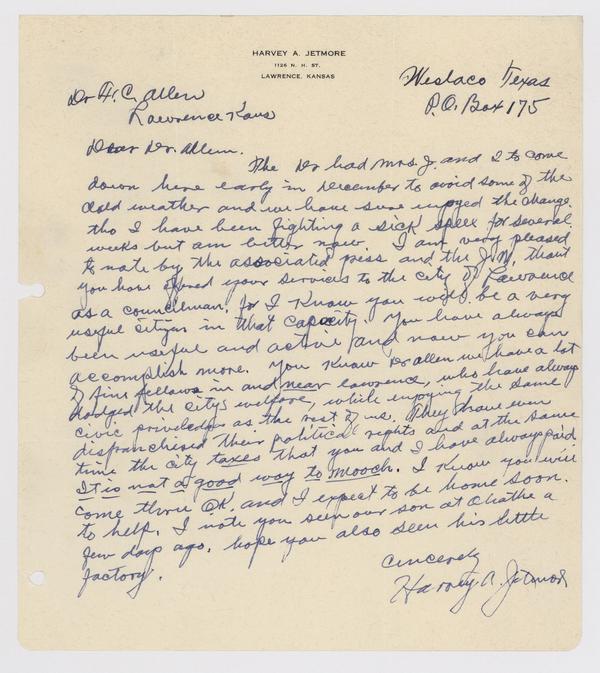 HARVEY A. JETMORE
1126 N. H. ST.
LAWRENCE, KANSAS
Weslaco Texas
P.O. Box 175
Dr F. C. Allen
Lawrence Kans
Dear Dr. Allen.
The Dr had Mrs. J. and I to come
down here early in December to avoid some of the
cold weather and we have sure injoyed the change.
tho I have been fighting a sick spell for several
weeks but am better now. I am very pleased
to note by the associated press and the J.W. that
you have offered your services to the City of Lawrence
as a councilman. for I Know you will be a very
useful citizen in that capacity. You have always
been useful and active and now you can
accomplish more. You Know Dr Allen we have a lot
of fine fellows in and near Lawrence, who have always
dodged the city's welfare, while enjoying the same
civic priviledges as the rest of us. They have even
disfranchised their political rights and at the same
time the city taxes that you and I have always paid.
It is not a good way to mooch. I Know you will
come thru O.K. and I expect to be home soon.
to help. I note you seen our son at Olathe a
few days ago. hope you also seen his little
factory.
Sincerely
Harvey A. Jetmore